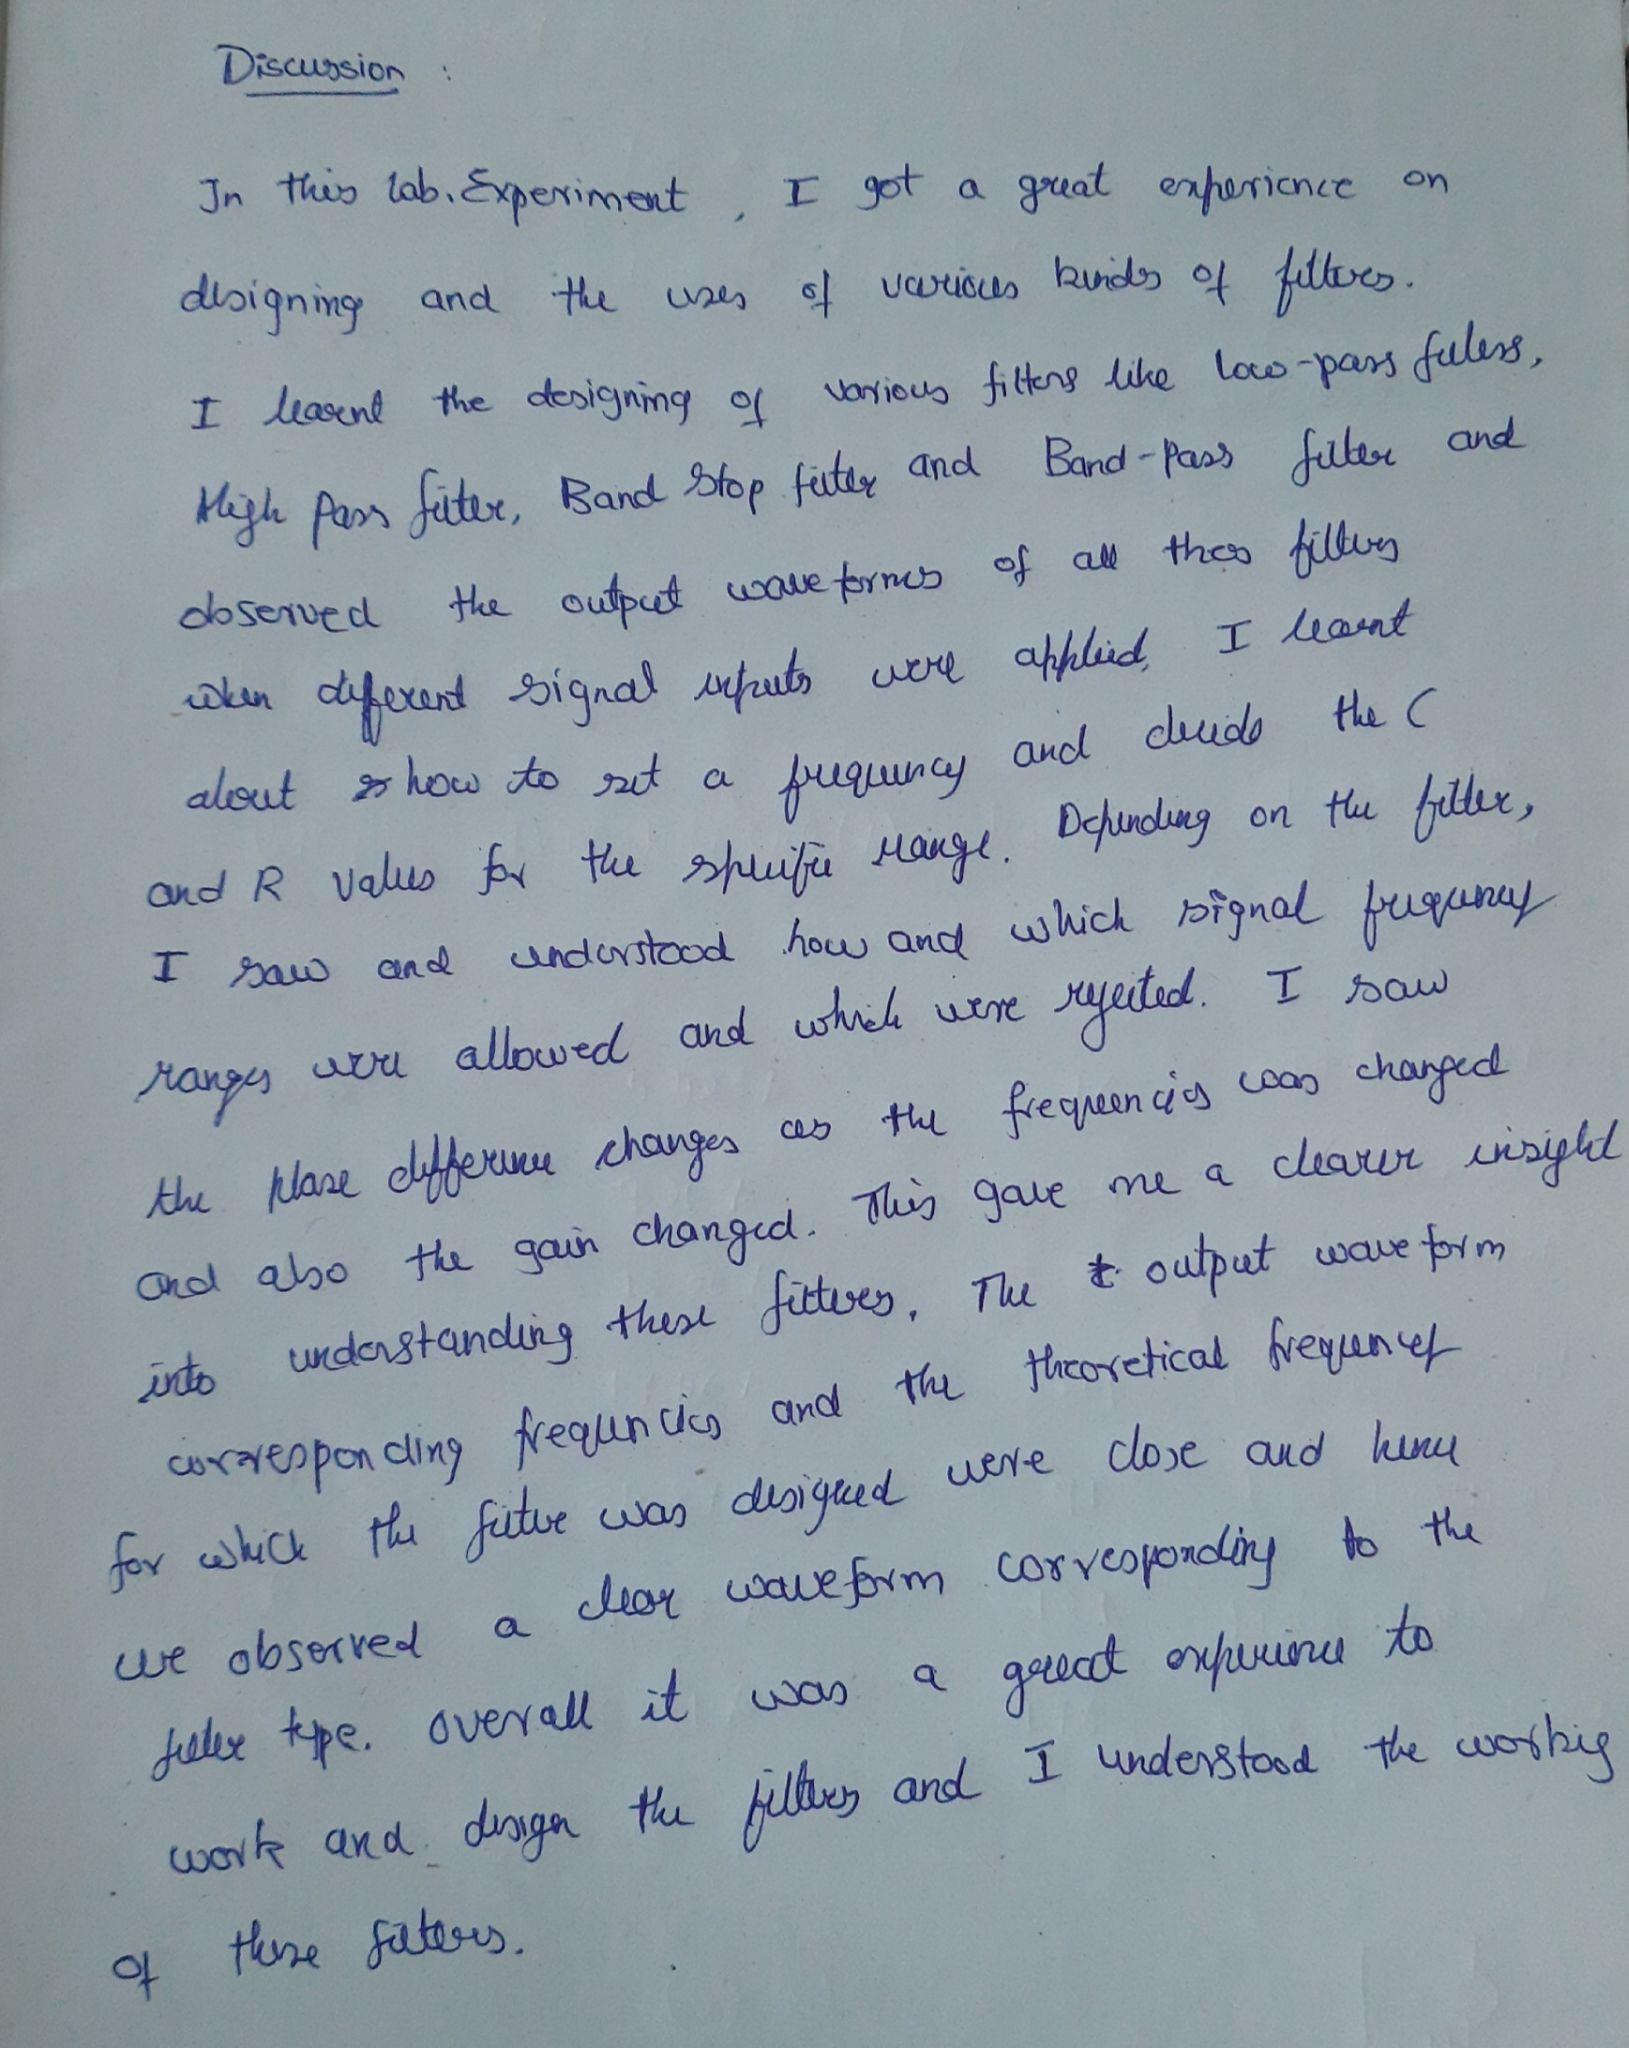 Discussion :
In this lab. Experiment , I got a great experience on
designing and the uses of various kinds of filters.
I learnt the designing of various filters like low-pass filters,
High Pass filter, Band Stop filter and Band-Pass filter and
observed the output waveforms of all thes filters
when different signal inputs were applied, I learnt
about how to set a frequency and decide the C
and R values for the specific range. Depending on the filter,
I saw and understood how and which signal frequency
ranges were allowed and which were rejected. I saw
the phase difference changes as the frequencies was changed
and also the gain changed. This gave me a clearer insight
into understanding these filters. The output waveform
corresponding frequencies and the theoretical frequency
for which the filter was designed were close and hence
we observed a clear waveform corresponding to the
filter type. Overall it was a great experience to
work and design the filters and I understood the workig
of these filters.